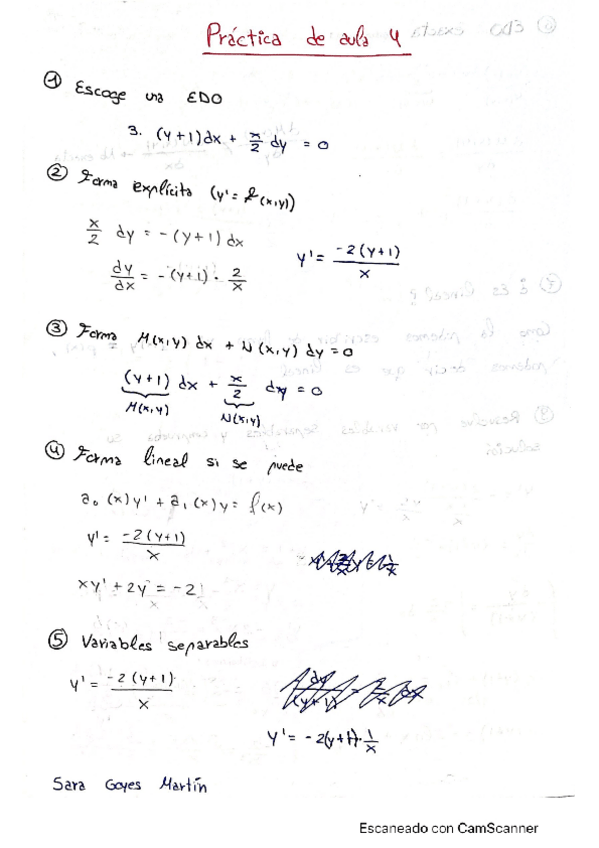 Práctica de aula 4
① Escoge una EDO
3. (y+1)dx + x/2 dy = 0
② Forma explícita (y' = f(x,y))
x/2 dy = -(y+1) dx
dy/dx = -(y+1) · 2/x
y' = -2(y+1)/x
③ Forma M(x,y) dx + N(x,y) dy = 0
(y+1) dx + x/2 dy = 0
M(x,y) N(x,y)
④ Forma lineal si se puede
a₀(x)y' + a₁(x)y = f(x)
y' = -2(y+1)/x
xy' + 2y = -2
⑤ Variables separables
y' = -2(y+1)/x
y' = -2(y+1)·1/x
Sara Goyes Martín
Escaneado con CamScanner